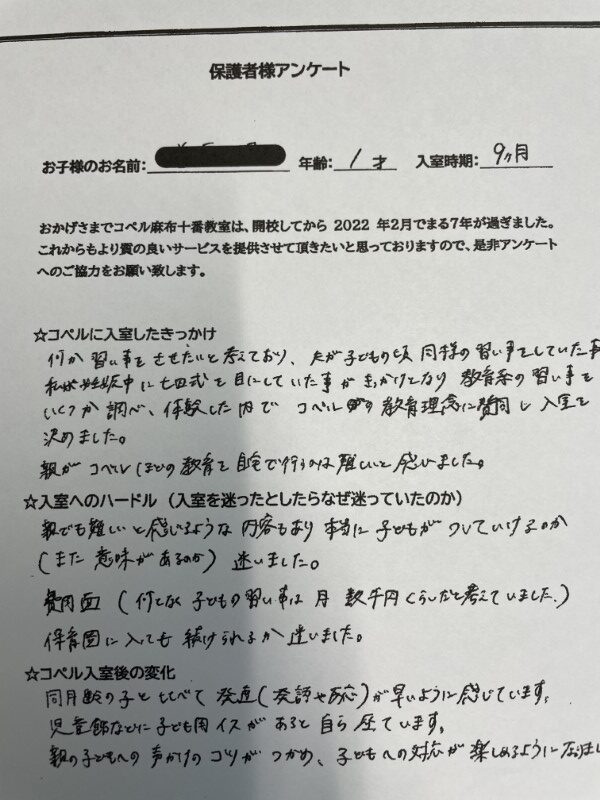 保護者様アンケート
お子様のお名前: 年齢: 1才 入室時期: 9ヶ月
おかげさまでコペル麻布十番教室は、開校してから 2022 年2月でまる7年が過ぎました。
これからもより質の良いサービスを提供させて頂きたいと思っておりますので、是非アンケート
へのご協力をお願い致します。
☆コペルに入室したきっかけ
何か習い事をさせたいと考えており、夫が子どもの頃同様の習い事をしていた事
私が妊娠中に七田式を目にしていた事がきっかけとなり 教育系の習い事を
いくつか調べ、体験した内で コペルの教育理念に賛同し入室を
決めました。
親がコペルほどの教育を自宅で行うのは難しいと感じました。
☆入室へのハードル（入室を迷ったとしたらなぜ迷っていたのか）
親でも難しいと感じるような内容もあり 本当に子どもがついていけるのか
(また意味があるのか) 迷いました。
費用面 (何となく子どもの習い事は月数千円くらいだと考えていました.)
保育園に入っても続けられるか迷いました。
☆コペル入室後の変化
同月齢の子と比べて発達(発語や反応)が早いように感じています。
児童館などに子ども用イスがあると自ら座っています。
親の子どもへの声かけのコツがつかめ、子どもへの対応が楽しめるようになりまし